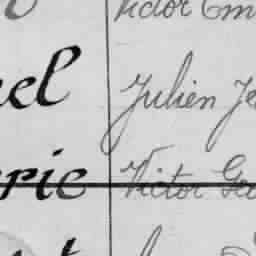 Victor Em
el Julien Je
rie Victor Geo